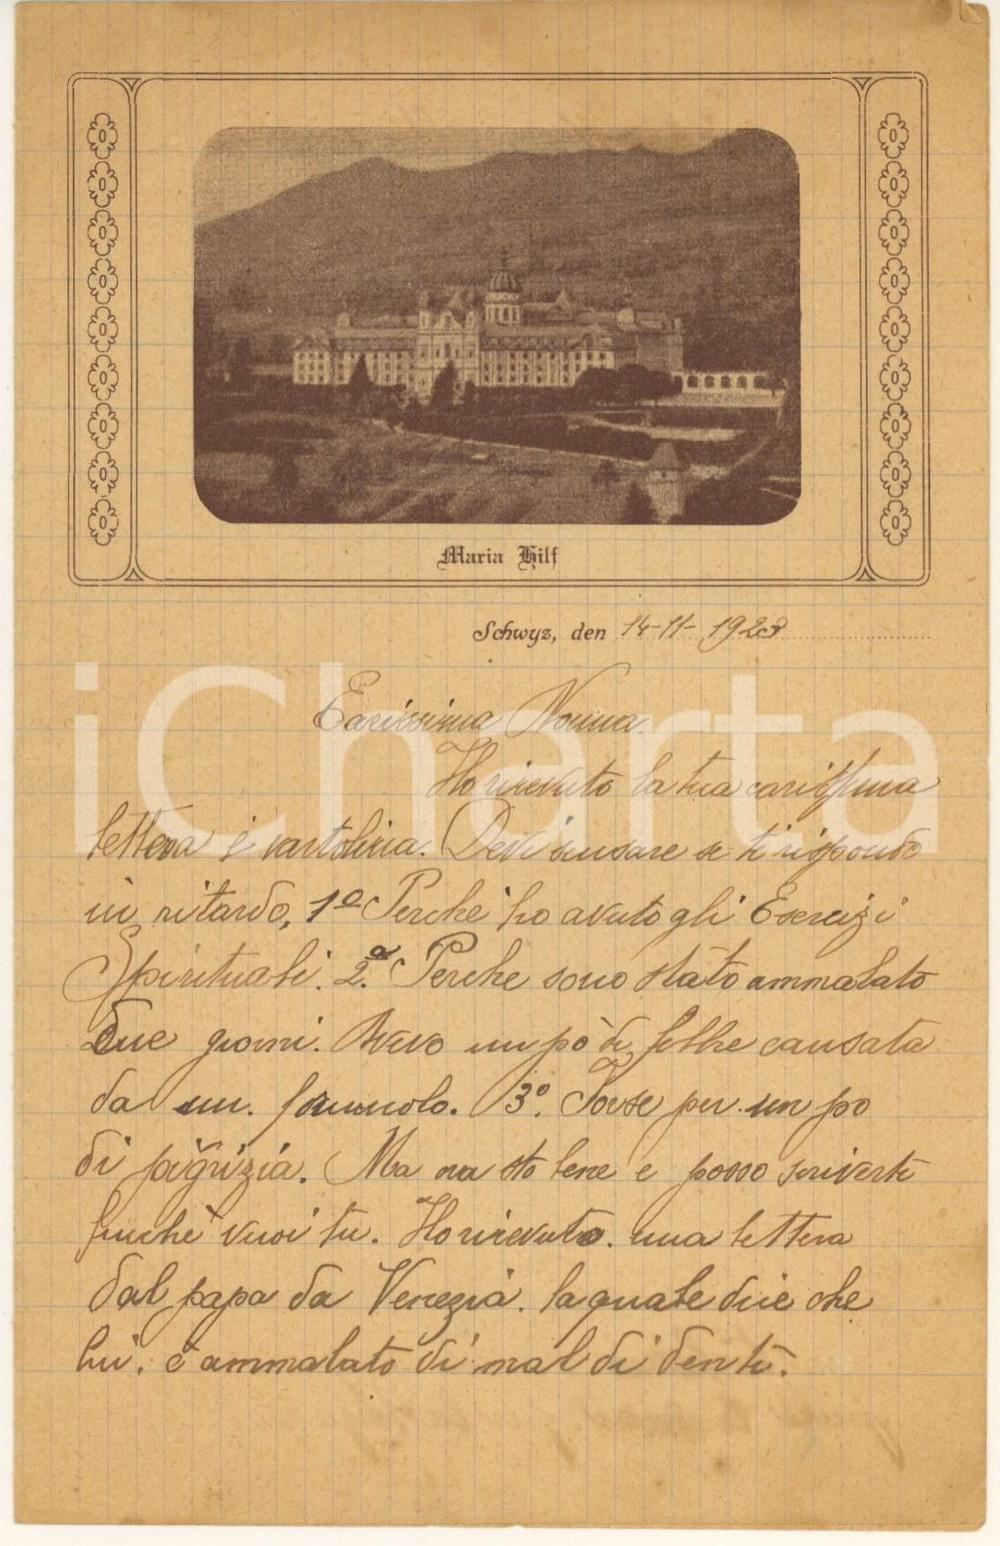 Maria Hilf
Schwyz, den 14-11-1923
iCharta
Carissima Nonna.
Ho ricevuto la tua carissima
lettera e cartolina. Devi scusare se ti rispondo
in ritardo, 1º Perchè ho avuto gli Esercizi
Spirituali. 2.ª Perche sono stato ammalato
due giorni. Avevo un pò di febbre causata
da un. foruncolo. 3º. Forse per un po
di pigrizia. Ma ora sto bene e posso scriverti
finchè vuoi tu. Ho ricevuto. una lettera
dal papa da Venezia. la quale dice che
lui. è ammalato di mal di denti.